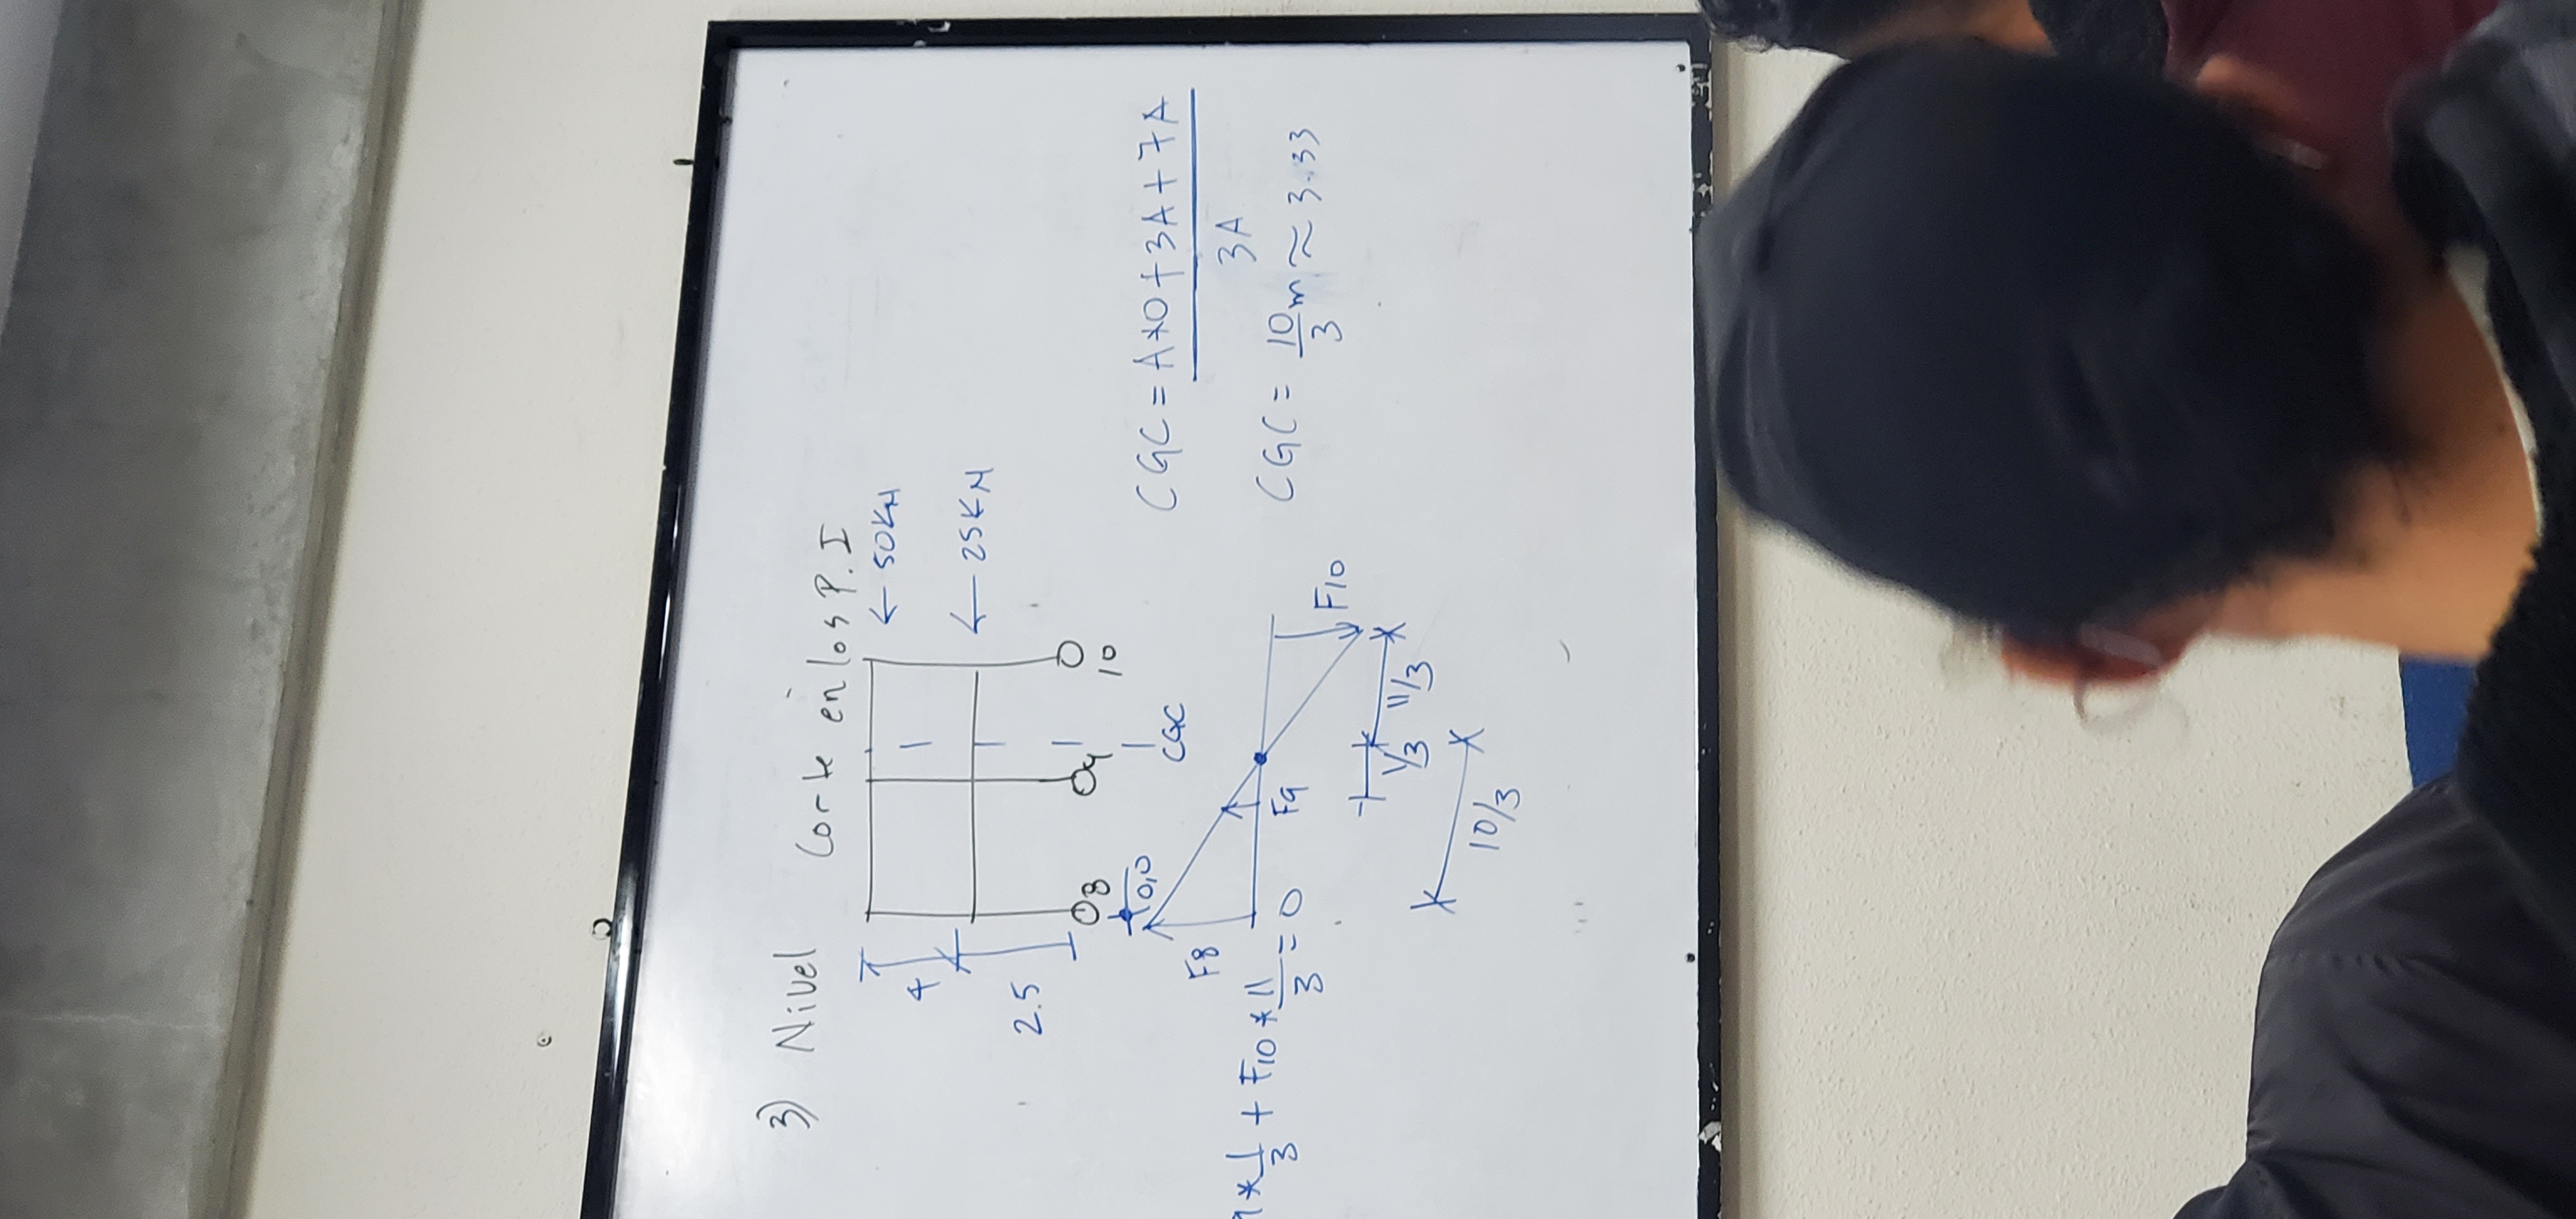 3) Nivel Corte en los P.I
← 50KN
4
← 25KN
2.5
8 9 10
0,0
CGC
F8
* 1/3 + F10 * 11/3 = 0
F9
F10
1/3 11/3
10/3
CGC = A*0+3A+7A / 3A
CGC = 10/3 m ≈ 3.33